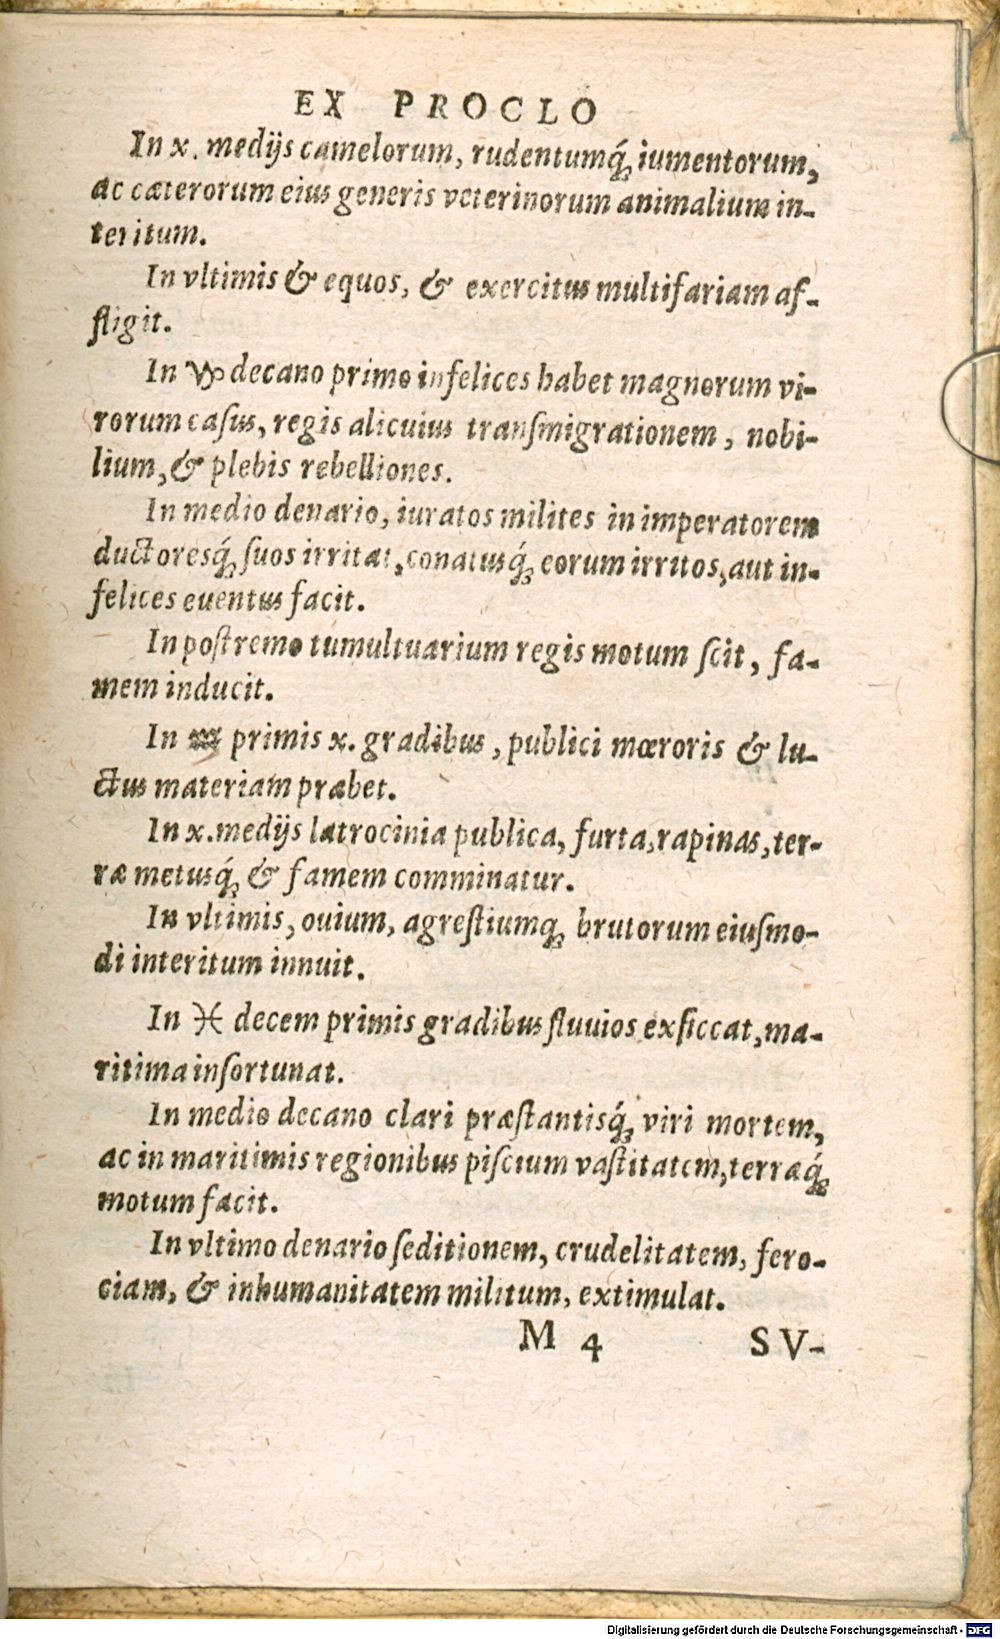 EX PROCLO
In x. medijs camelorum, rudentumq́; iumentorum,
ac cæterorum eius generis veterinorum animalium in-
teritum.
In vltimis & equos, & exercitus multifariam af-
fligit.
In ♑ decano primo infelices habet magnorum vi-
rorum casus, regis alicuius transmigrationem, nobi-
lium, & plebis rebelliones.
In medio denario, iuratos milites in imperatorem
ductoresq́; suos irritat, conatusq́; eorum irritos, aut in-
felices euentus facit.
In postremo tumultuarium regis motum scit, fa-
mem inducit.
In ♒ primis x. gradibus, publici mœroris & lu-
ctus materiam præbet.
In x. medijs latrocinia publica, furta, rapinas, ter-
ræ metusq́; & famem comminatur.
In vltimis, ouium, agrestiumq; brutorum eiusmo-
di interitum innuit.
In ♓ decem primis gradibus fluuios exsiccat, ma-
ritima insortunat.
In medio decano clari præstantisq́; viri mortem,
ac in maritimis regionibus piscium vastitatem, terræq́;
motum facit.
In vltimo denario seditionem, crudelitatem, fero-
ciam, & inhumanitatem militum, extimulat.
M 4 SV-
Digitalisierung gefördert durch die Deutsche Forschungsgemeinschaft - DFG